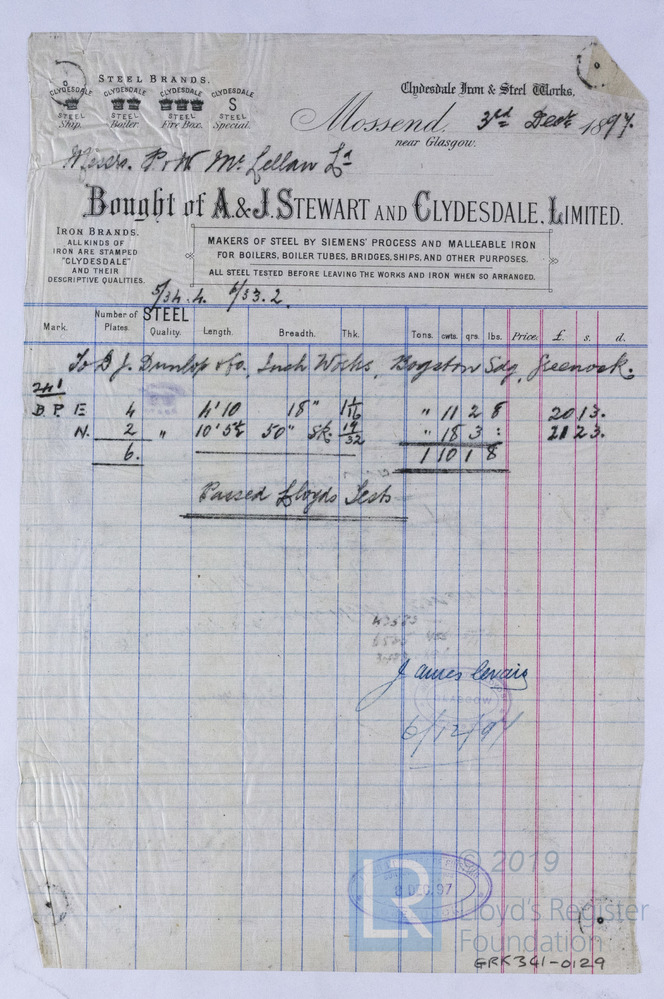 STEEL BRANDS.
CLYDESDALE CLYDESDALE CLYDESDALE CLYDESDALE
S
STEEL STEEL STEEL STEEL
Ship. Boiler. Fire Box. Special.
Clydesdale Iron & Steel Works,
Mossend, 3rd Decr 1897.
near Glasgow.
Messrs. P & W McLellan Ld
Bought of A. & J. STEWART AND CLYDESDALE, LIMITED.
IRON BRANDS.
ALL KINDS OF
IRON ARE STAMPED
"CLYDESDALE"
AND THEIR
DESCRIPTIVE QUALITIES.
MAKERS OF STEEL BY SIEMENS' PROCESS AND MALLEABLE IRON
FOR BOILERS, BOILER TUBES, BRIDGES, SHIPS, AND OTHER PURPOSES.
ALL STEEL TESTED BEFORE LEAVING THE WORKS AND IRON WHEN SO ARRANGED.
5/34.4. 6/33.2.
Mark. Number of Plates. STEEL Quality. Length. Breadth. Thk. Tons. cwts. qrs. lbs. Price. £. s. d.
To D. J. Dunlop & Co., Inch Works, Bogston Sdg, Greenock.
241
D.P. E 4 4'10 18" 1 1/16 " 11 2 8 2013.
N. 2 " 10'5½ 50" Sk. 19/32 " 18 3 : 2123.
6. 1 10 1 8
Passed Lloyds Tests
James Craig
GLASGOW
6/12/97
8 DEC. 97
LR
© 2019
Lloyd's Register
Foundation
GRK341-0129